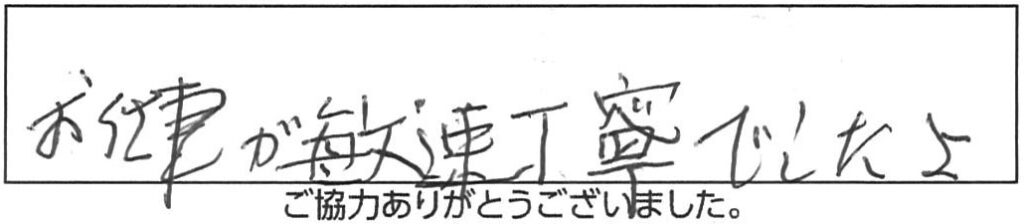 お仕事が敏速丁寧でしたよ
ご協力ありがとうございました。